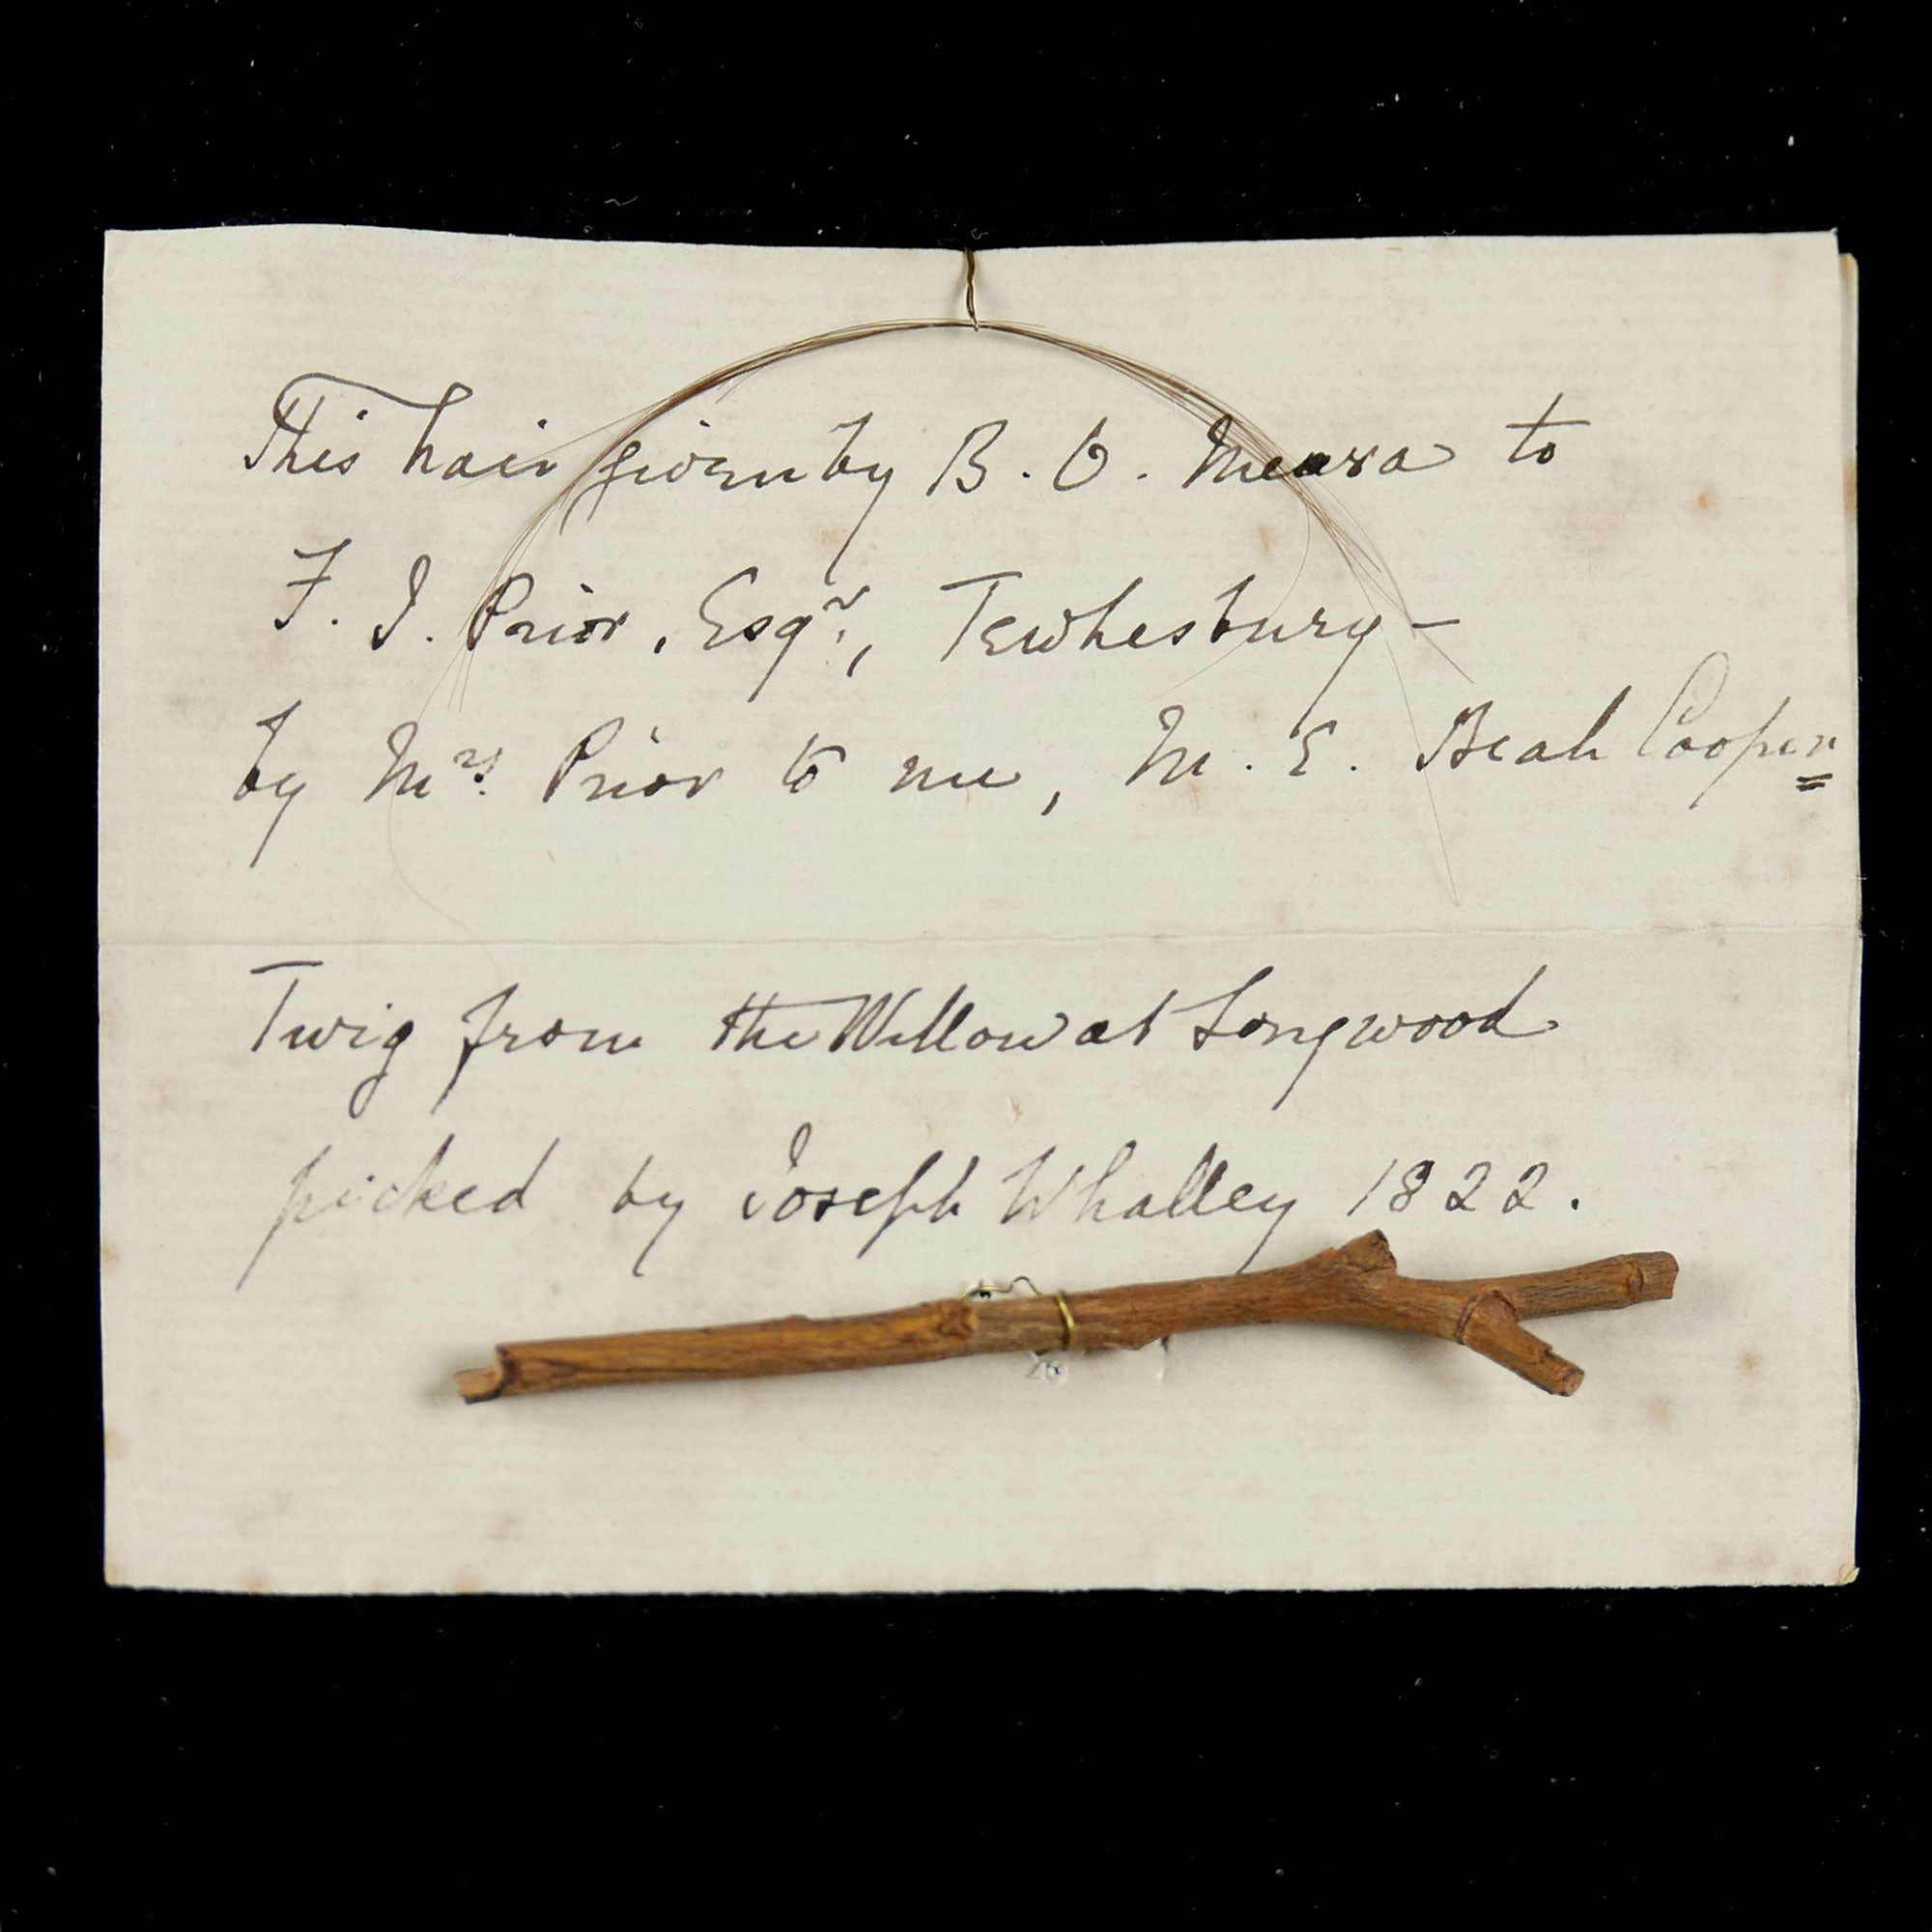 This hair given by B. O. Meara to
F. J. Prior, Esqr., Tewkesbury –
by Mrs. Prior to me, M. E. Beak Cooper
Twig from the Willow at Longwood
picked by Joseph Whalley 1822.